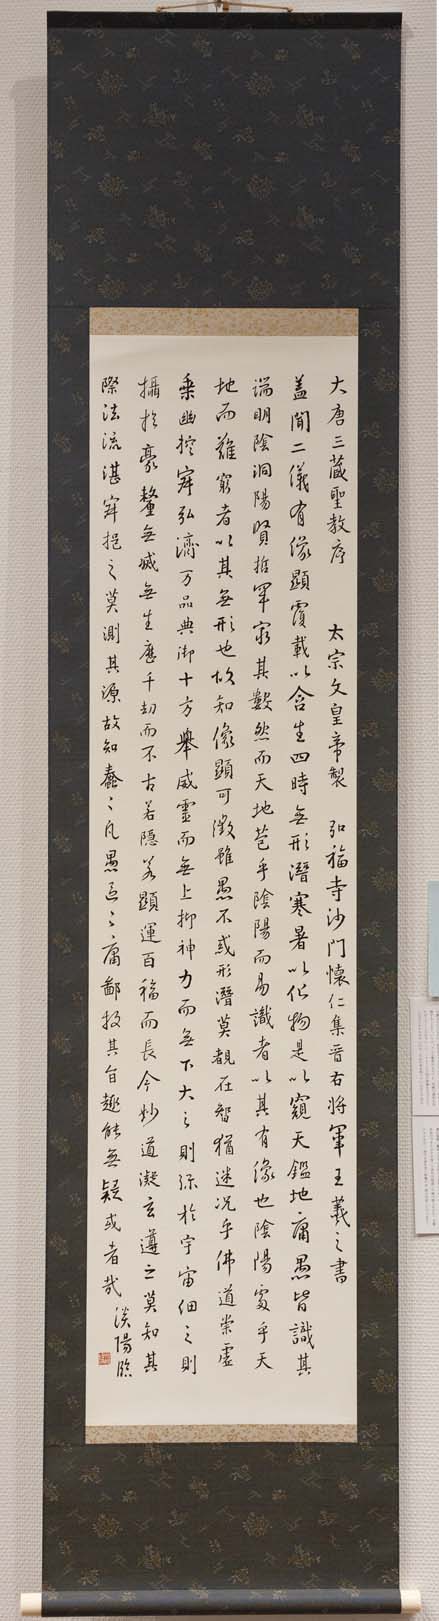 大唐三藏聖教序　太宗文皇帝製　弘福寺沙門懷仁集晉右將軍王羲之書
蓋聞二儀有像顯覆載以含生四時無形潛寒暑以化物是以窺天鑑地庸愚皆識其
端明陰洞陽賢哲罕窮其數然而天地苞乎陰陽而易識者以其有像也陰陽處乎天
地而難窮者以其無形也故知像顯可徵雖愚不惑形潛莫覩在智猶迷况乎佛道崇虛
乘幽控寂弘濟万品典御十方舉威靈而無上抑神力而無下大之則弥於宇宙細之則
攝於豪釐無滅無生歷千劫而不古若隱若顯運百福而長今妙道凝玄遵之莫知其
際法流湛寂挹之莫測其源故知蠢々凡愚區々庸鄙投其旨趣能無疑或者哉
淡陽臨